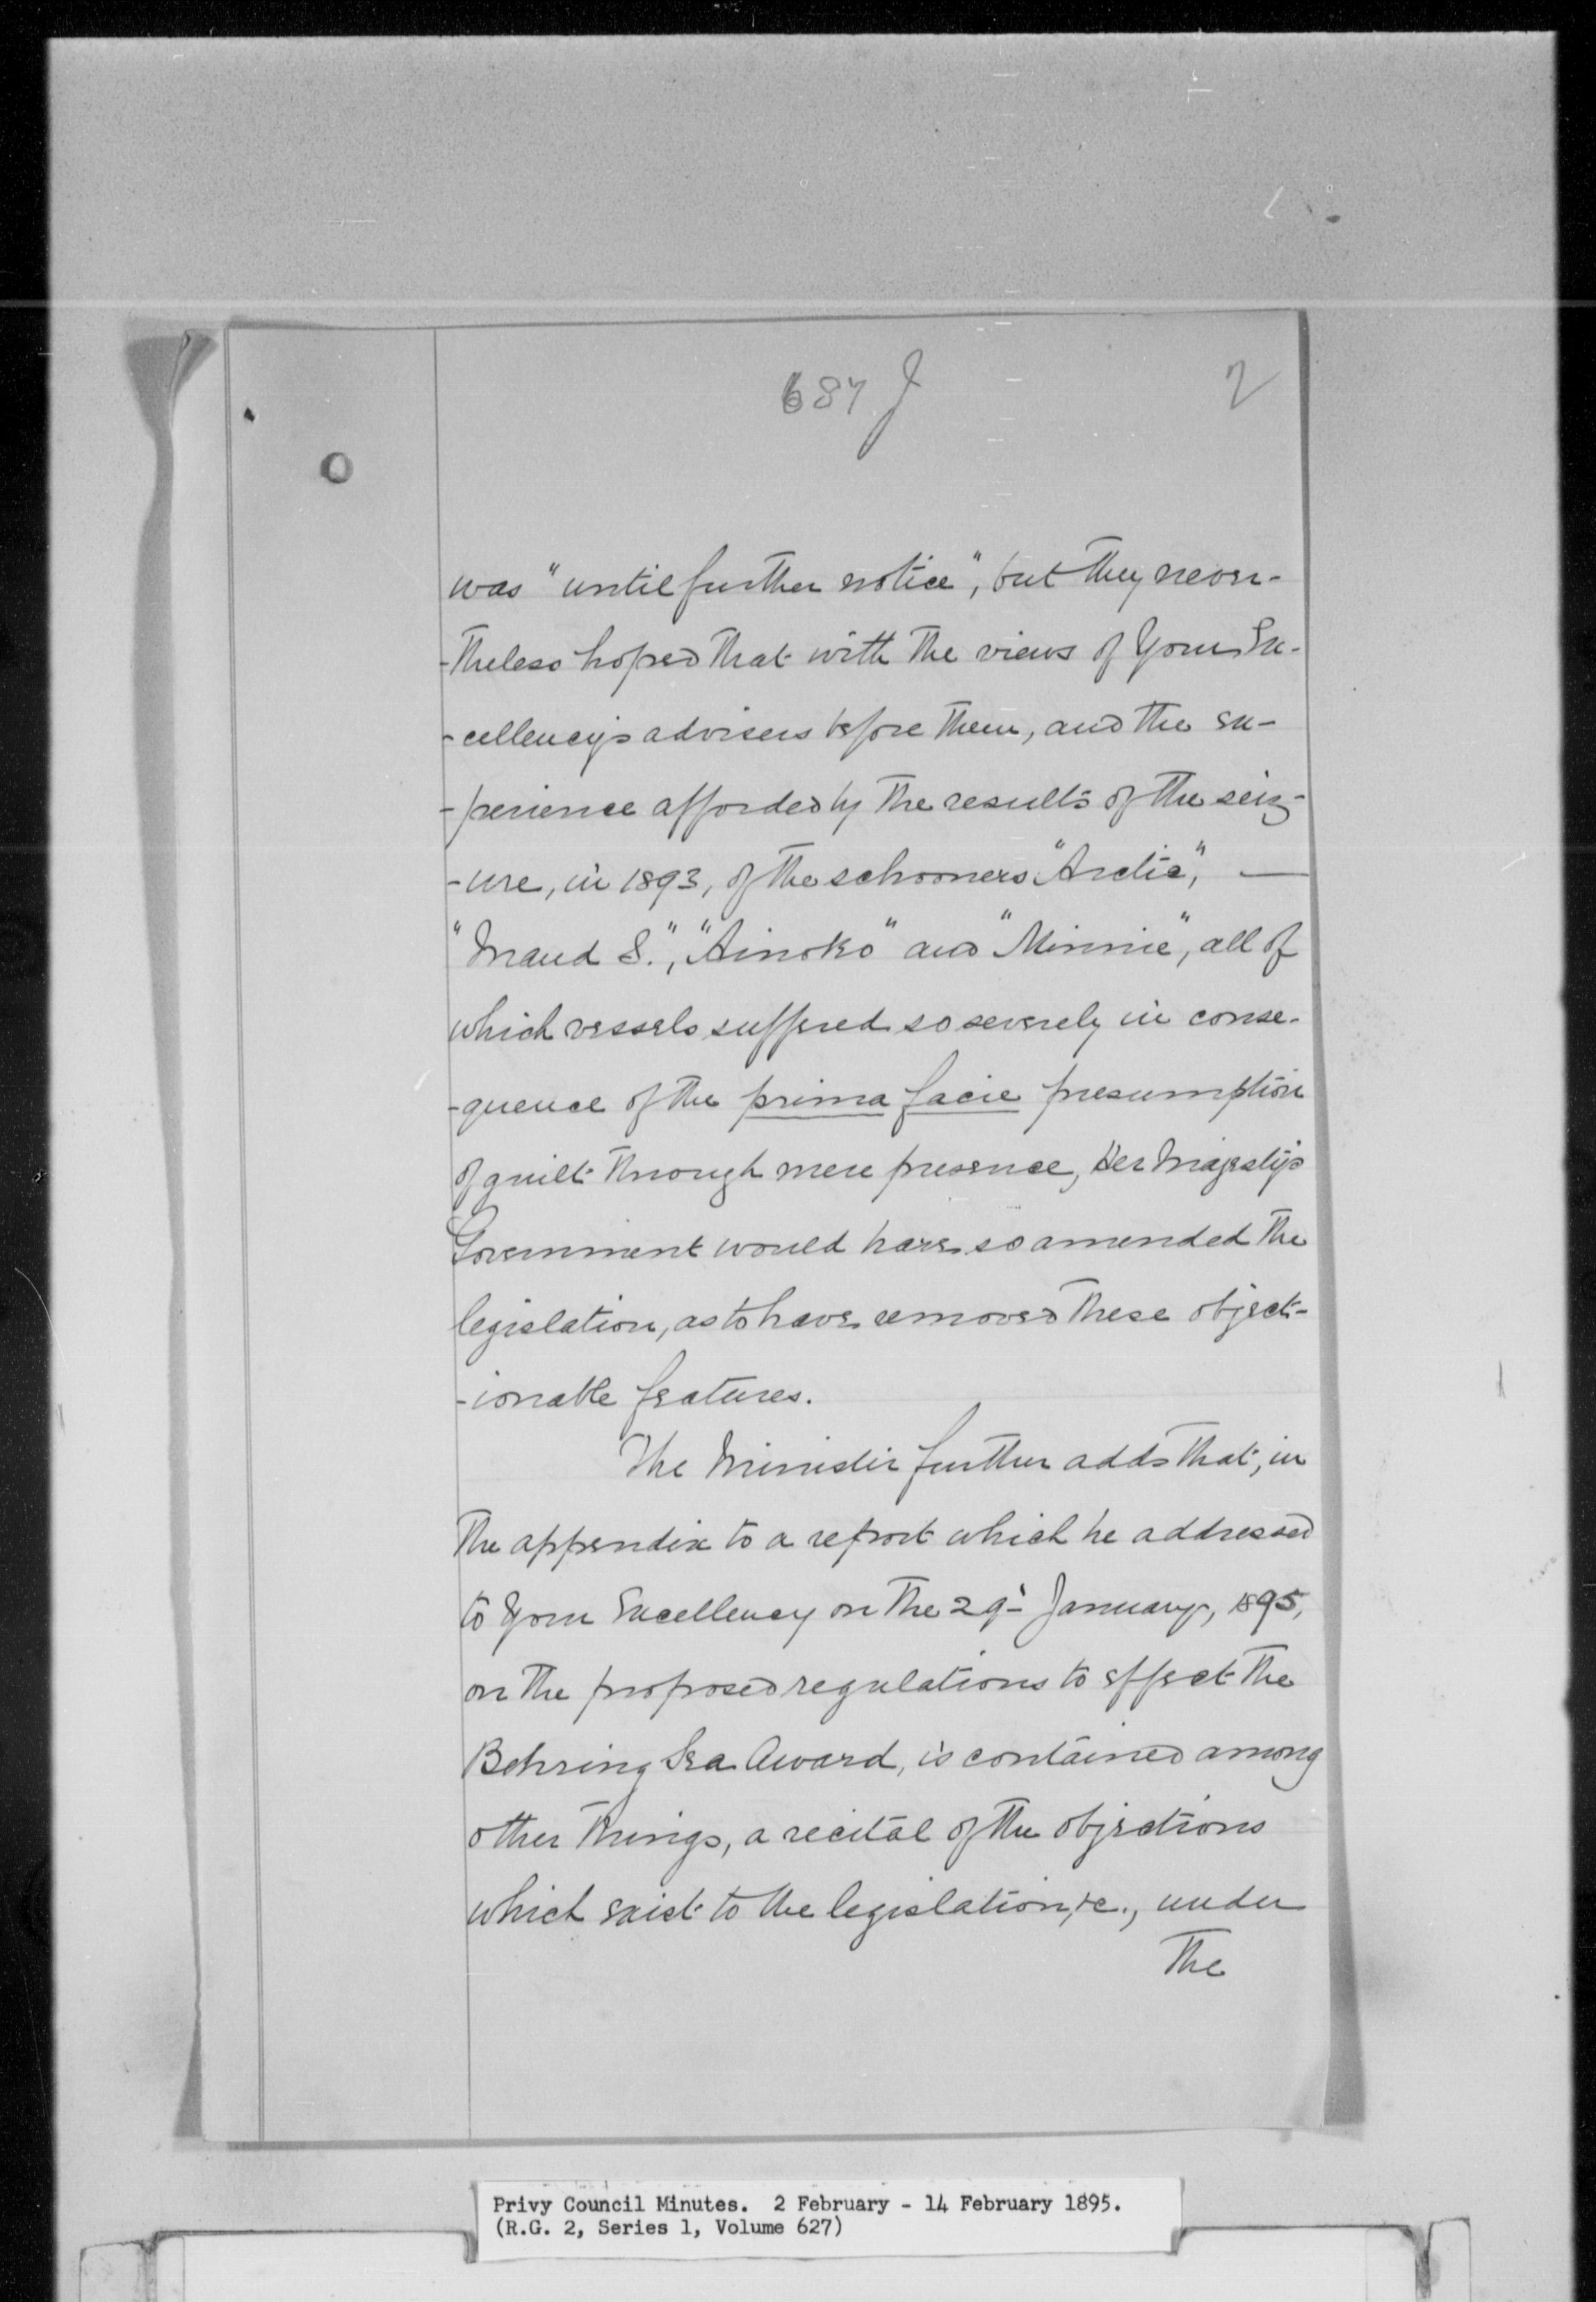 687 J
2
was "until further notice", but they never-
-theless hoped that with the views of Your Ex-
-cellency's advisers before them, and the ex-
-perience afforded by the results of the seiz-
-ure, in 1893, of the schooners "Arctic", —
"Maud S.", "Ainoko" and "Minnie", all of
which vessels suffered so severely in conse-
-quence of the prima facie presumption
of guilt through mere presence, Her Majesty's
Government would have so amended the
legislation, as to have removed these object-
-ionable features.
The Minister further adds that, in
the appendix to a report which he addressed
to Your Excellency on the 29th January, 1895,
on the proposed regulations to effect the
Behring Sea Award, is contained among
other things, a recital of the objections
which exist to the legislation, &c., under
The
Privy Council Minutes. 2 February - 14 February 1895.
(R.G. 2, Series 1, Volume 627)